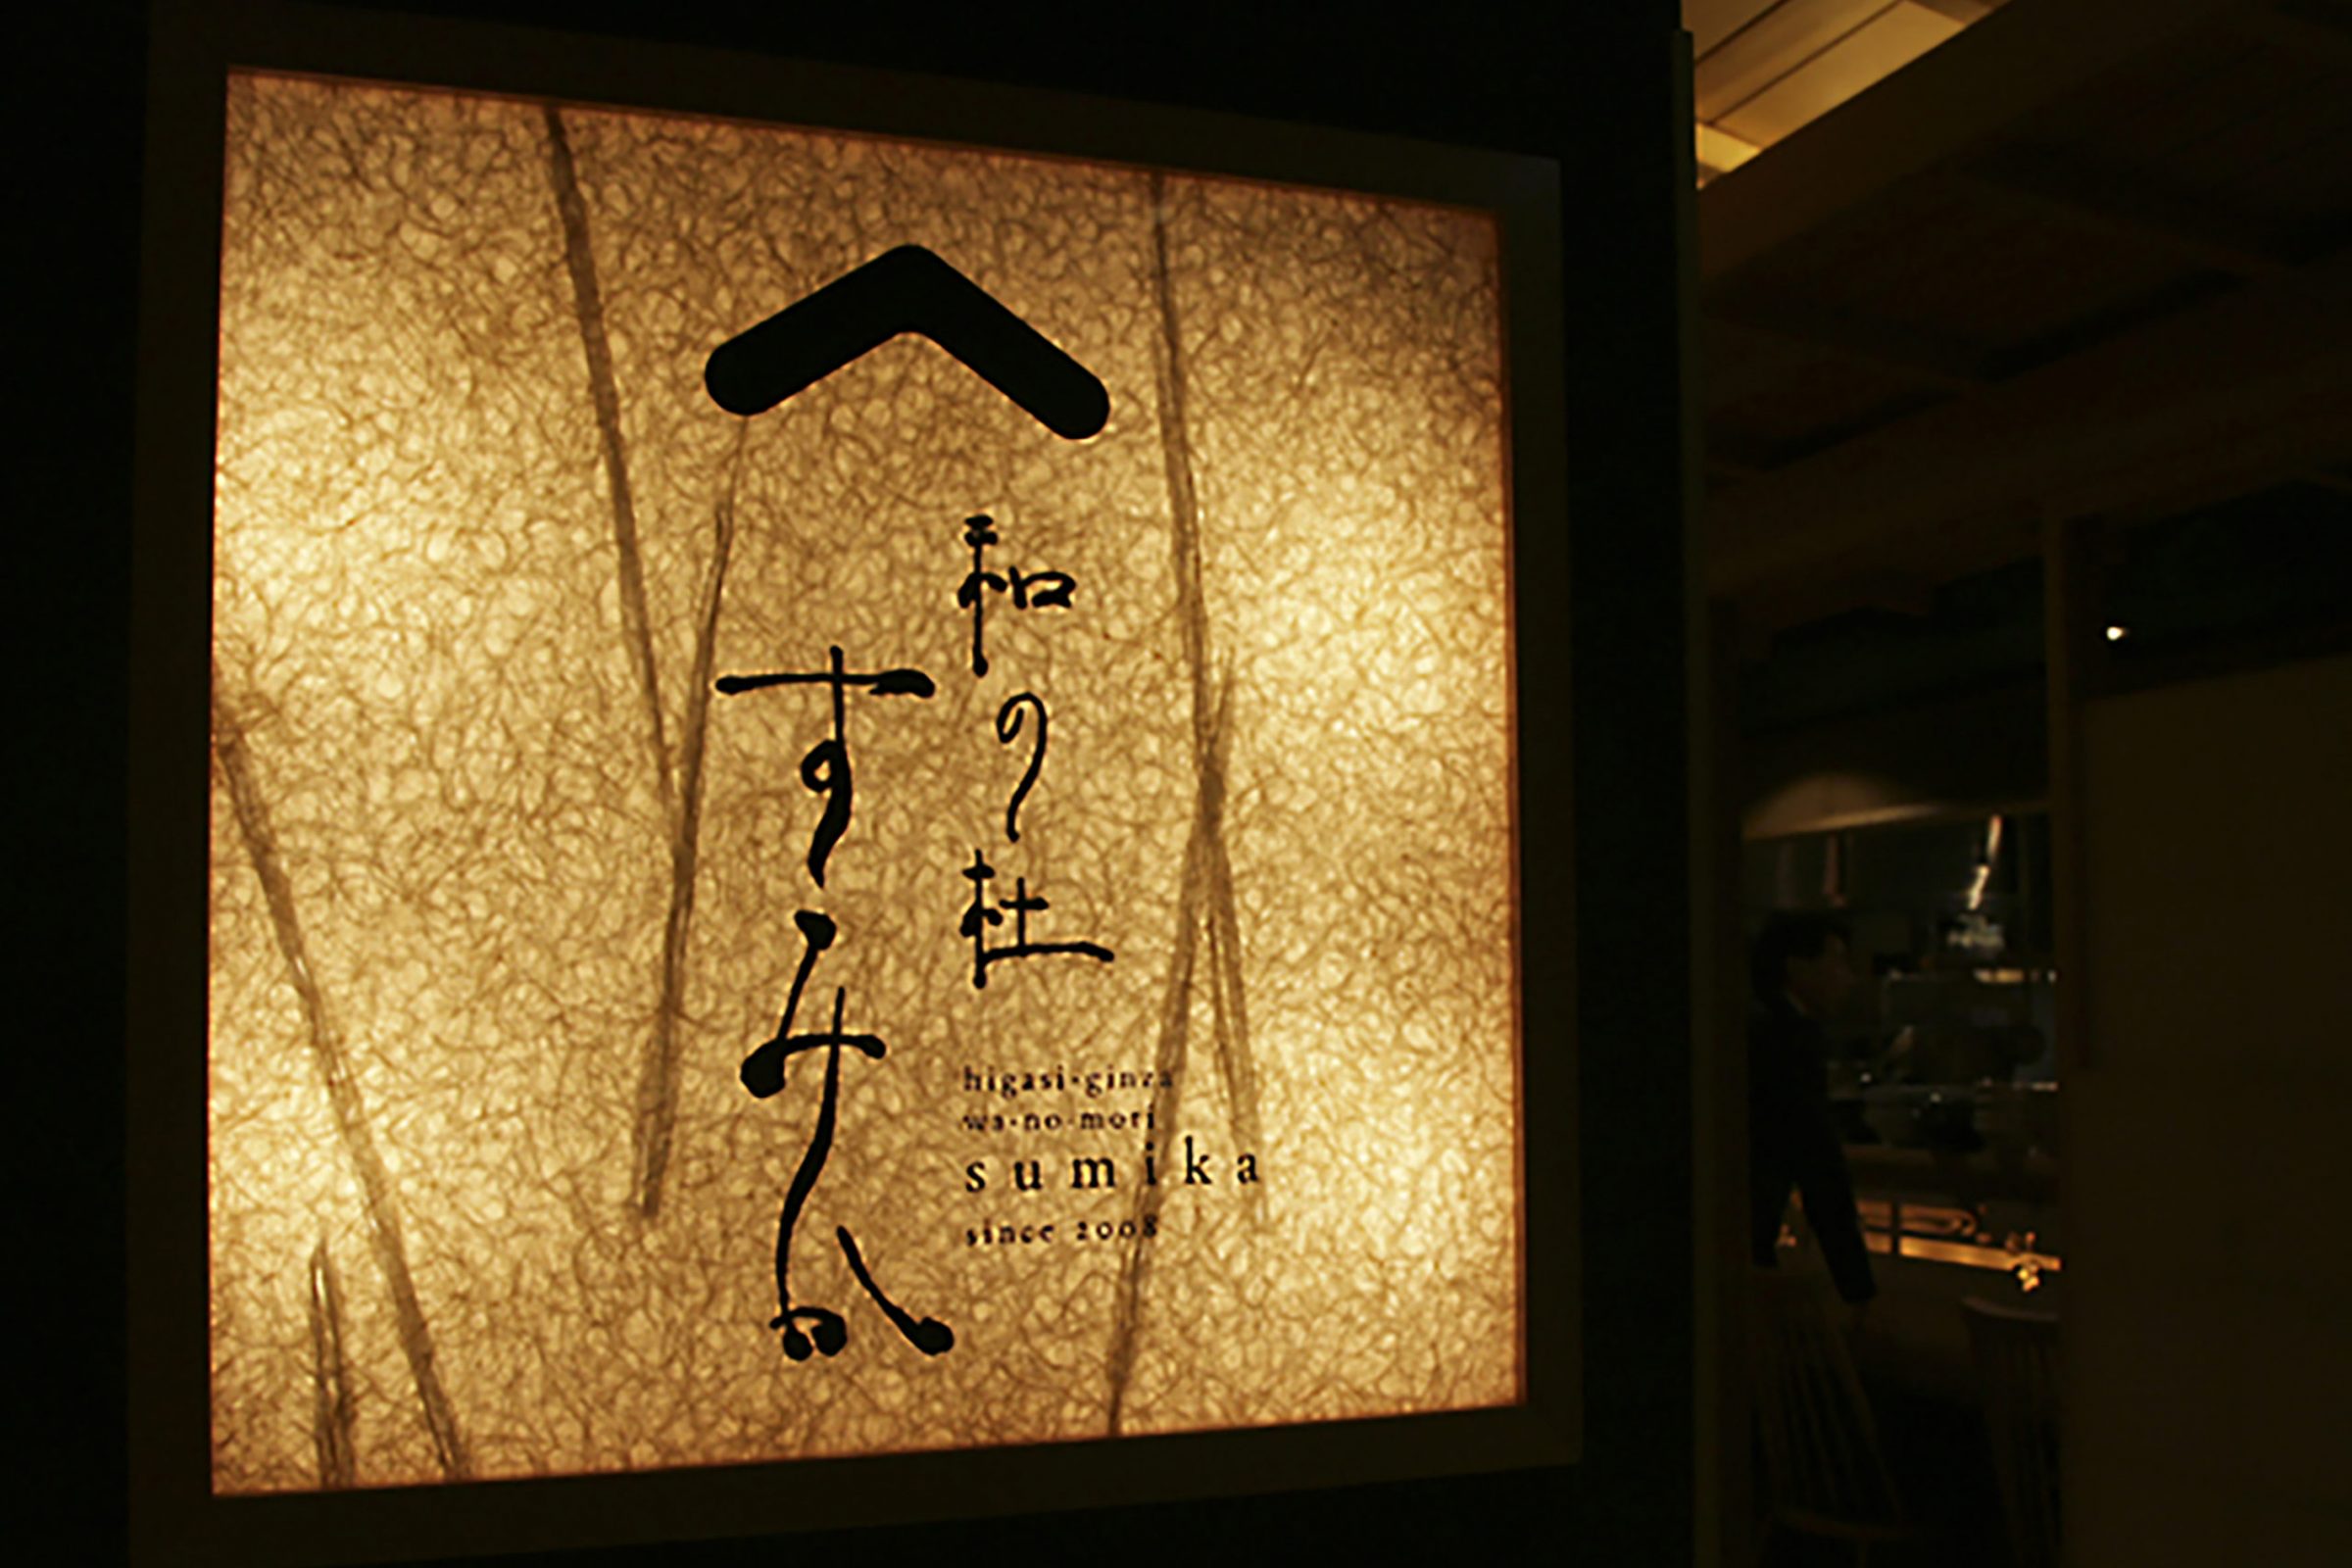 和の杜
すみか
higasi-ginza
wa-no-mori
sumika
since 2008